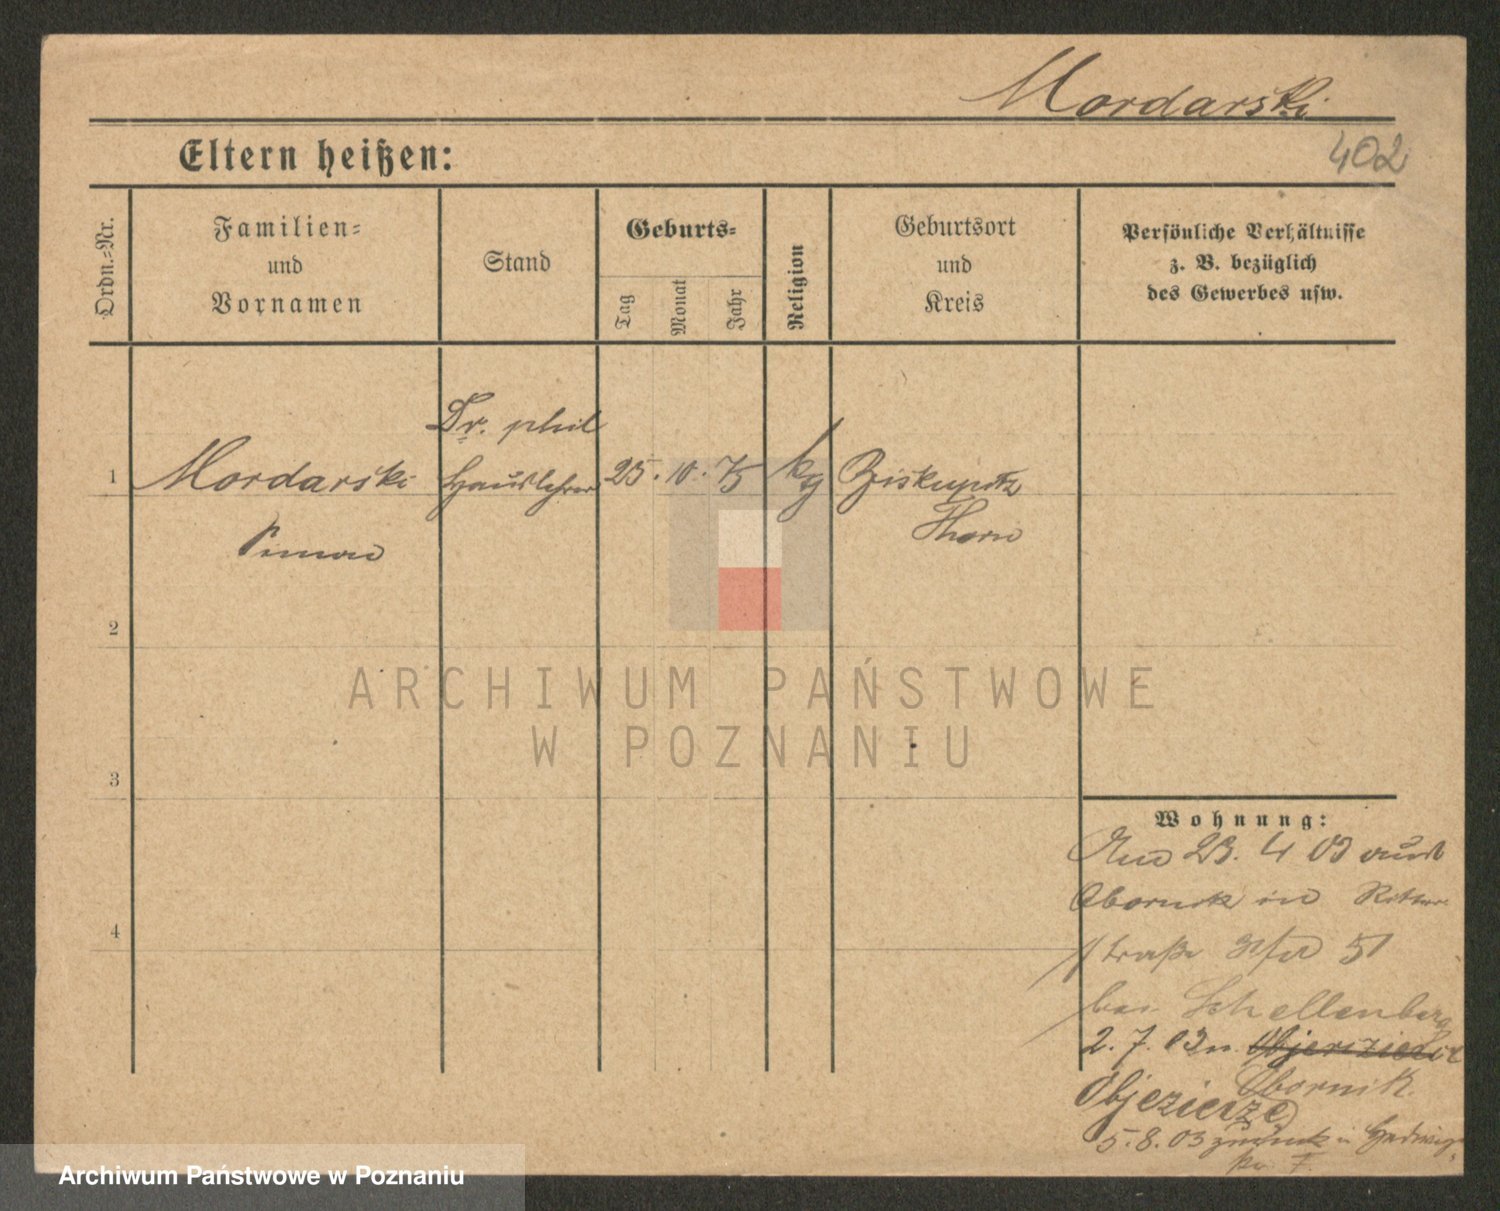 Mordarski
402
Eltern heißen:
Ordn.-Nr.
Familien-
und
Vornamen
Stand
Geburts-
Tag
Monat
Jahr
Religion
Geburtsort
und
Kreis
Persönliche Verhältnisse
z. B. bezüglich
des Gewerbes usw.
Dr. phil
1 Mordarski Hauslehrer 25. 10. 75 kg Biskupitz
Thorn
Simon
2
ARCHIWUM PAŃSTWOWE
W POZNANIU
3
Wohnung:
23. 4 03 aus
Obornik in Ritter
straße 51
bei Schellenberg
2. 7. 03 n.
Obornik
Objezierze
5. 8. 03 zurück
Archiwum Państwowe w Poznaniu
4